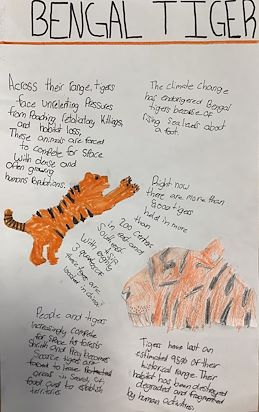 BENGAL TIGER
Across their range, tigers
face unrelenting pressures
from poaching, retaliatory killings,
and habitat loss,
These animals are forced
to compete for space
with dense and
often growing
humans Populations.
The climate change
has endangered Bengal
tigers because of
rising sea levels about
a foot.
Right now
there are more than
8000 tigers
held in more
than
200 centre
in east and
Southeast
ASIA
with eighty
3 quarters of
these tigers are
located in china!
People and tigers
increasingly compete
for space. As forests
shrink and Prey becomes
scarce tigers are
forced to leave
areas in search of
food and to establish
territories
Tigers have lost an
estimated 95% of their
historical range. Their
habitat has been destroyed
degraded and fragmented
by human activities.